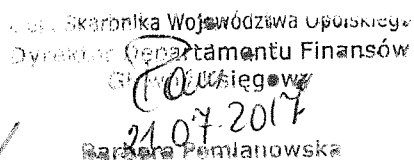 Skarbnika Województwa Opolskiego
Dyrektor Departamentu Finansów
Księgowy
21.07.2017
Barbara Pomianowska